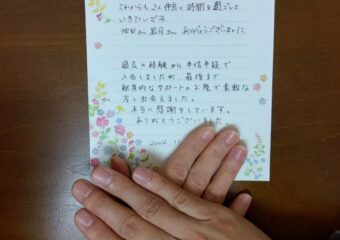 これからも2人仲良く時間を過ごして
いきたいです。
さん 若月さん ありがとうございました
過去の経験から半信半疑で
入会しましたが、最後まで
献身的なサポートのお陰で素敵な
方と出会えました。
本当に感謝をしています。
ありがとうございました。
2014.11